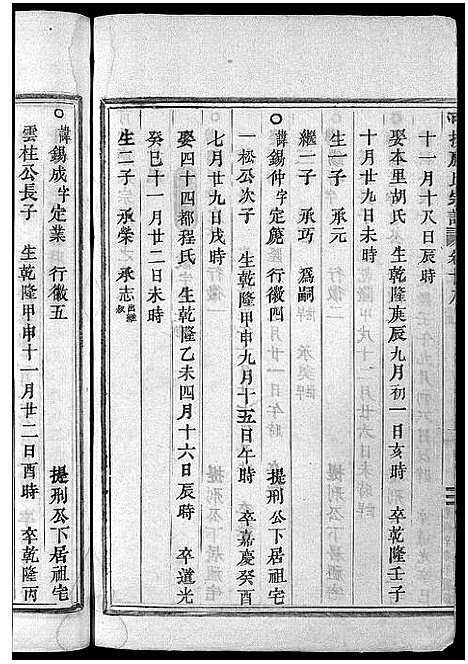 十一月十八日辰時
娶本里胡氏 生乾隆庚辰九月初一日亥時 卒乾隆壬子
十月廿九日未時
生一子 承元
繼一子 承巧 爲嗣
諱錫仲字定蓏 行徽四 提刑公下居祖宅
一松公次子 生乾隆甲申九月十五日午時 卒嘉慶癸酉
七月廿九日戌時
娶四十四都程氏 生乾隆乙未四月十六日辰時 卒道光
癸巳十一月廿二日未時
生二子 承榮 承志出繼叔
諱錫成字定業 行徽五 提刑公下居祖宅
雲桂公長子 生乾隆甲申十一月廿二日酉時 卒乾隆丙